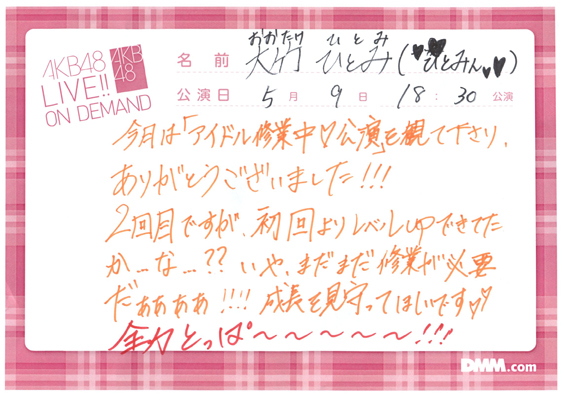 AKB48
LIVE!!
ON DEMAND
AKB
48
おおたけ ひとみ
名前 大竹 ひとみ(ひとみん)
公演日 5月 9日 18:30 公演
今日は「アイドル修業中♡公演」を観て下さり、
ありがとうございました!!!
2回目ですが、初回よりレベルupできてた
か…な…?? いや、まだまだ修業が必要
だぁぁぁぁ!!!! 成長を見守ってほしいです♡♡
全力とっぱ〜〜〜〜〜!!!
DMM.com